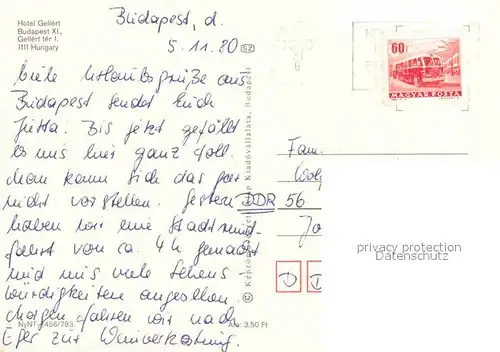 Hotel Gellért
Budapest XI.,
Gellért tér 1.
1111 Hungary
Budapest, d.
5.11.80
SZ
liebe Urlaubsgrüße aus
Budapest sendet Euch
Jutta. Bis jetzt gefällt
es uns hier ganz toll.
Man kann sich das gar
nicht vorstellen. Gestern
haben wir eine Stadtrund-
fahrt von ca. 4 h gemacht
und uns viele Sehens-
würdigkeiten angesehen.
Morgen fahren wir nach
Eger zur Weinverkostung.
NyNT-
Ára: 3,50 Ft
© Képzőművészeti Alap Kiadóvállalata, Budapest
60f
MAGYAR POSTA
Fam.
DDR 56
D D
privacy protection
Datenschutz